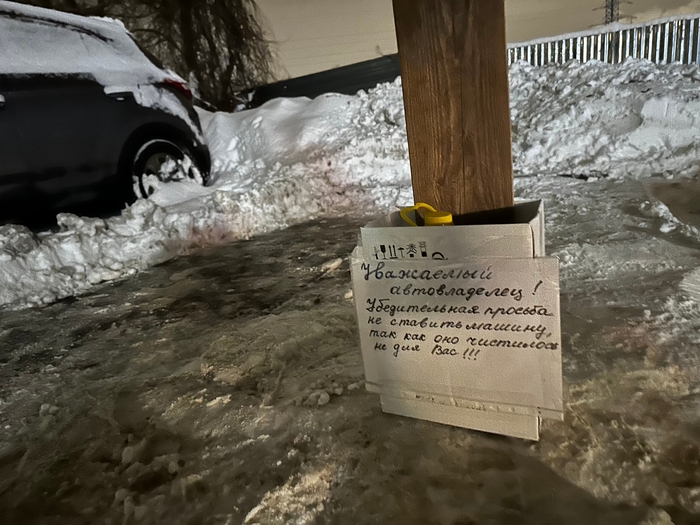 Уважаемый
автовладелец!
Убедительная просьба
не ставить машину,
так как оно чистилось
не для Вас!!!